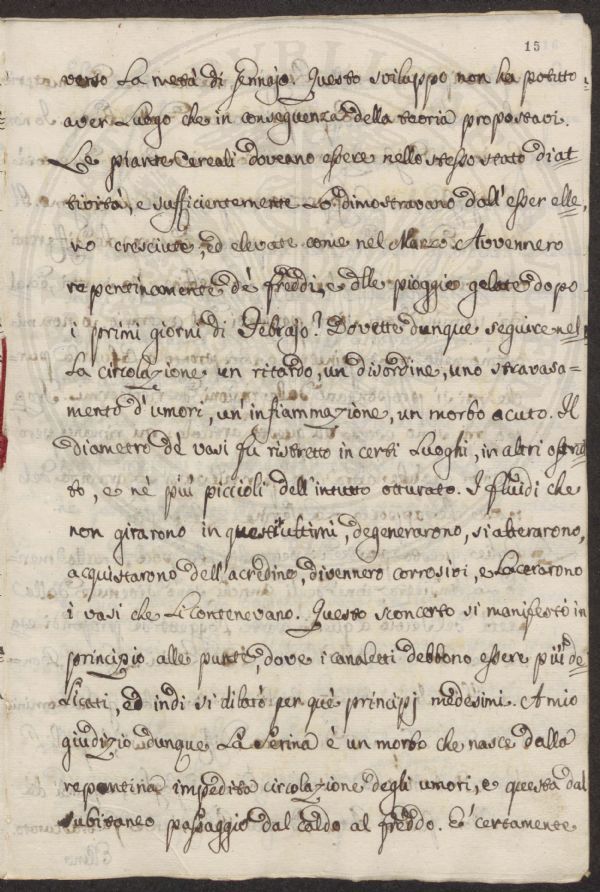 15
verso la metà di Jennajo. Questo sviluppo non ha potuto
aver luogo che in conseguenza della teoria propostavi.
Le piante Cereali doveano essere nello stesso stato d'at=
tività, e sufficientemente lo dimostravano dall'esser elle,
no cresciute, ed elevate come nel Marzo. Avvennero
repentinamente de' freddi, e delle pioggie gelate dopo
i primi giorni di Febrajo? Dovette dunque seguire nel=
la circolazione un ritardo, un disordine, uno stravasa=
mento d'umori, un'infiammazione, un morbo acuto. Il
diametro de' vasi fu ristretto in certi luoghi, in altri ostrui
to, e ne' più piccioli dell'intutto otturato. I fluidi che
non girarono in questi ultimi, degenerarono, si alterarono,
acquistarono dell'acredine, divennero corrosivi, e lacerarono
i vasi che li contenevano. Questo sconcerto si manifestò in
principio alle punte, dove i canaletti debbono essere più de=
licati, ed indi si dilatò per que' principj medesimi. A mio
giudizio dunque la Serina è un morbo che nasce dalla
repentina impedita circolazione degli umori, e questa dal
subitaneo passaggio dal caldo al freddo. E' certamente